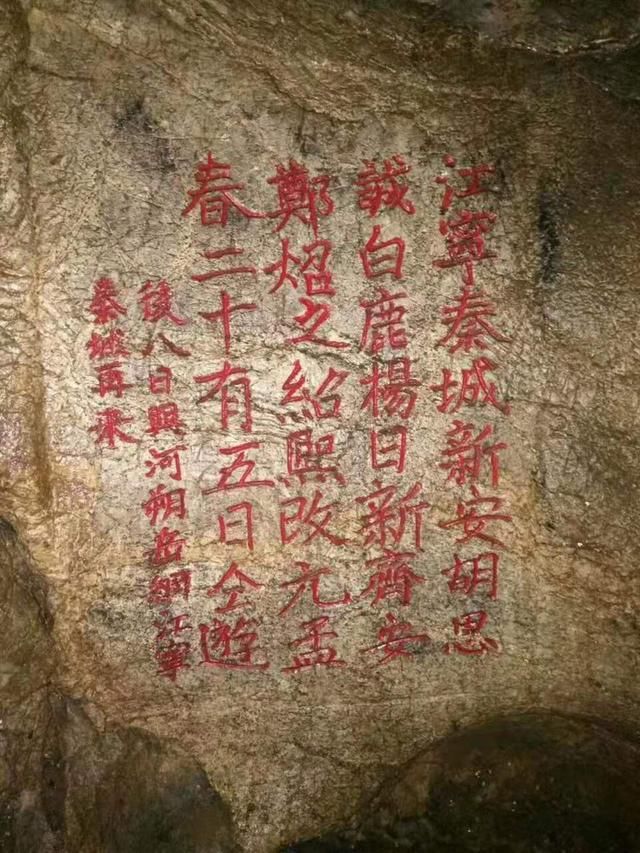 江寧秦城新安胡思
誠白鹿楊日新齊安
鄭煴之紹熙改元孟
春二十有五日仝遊
後八日與河朔岳炯江寧
秦城再來